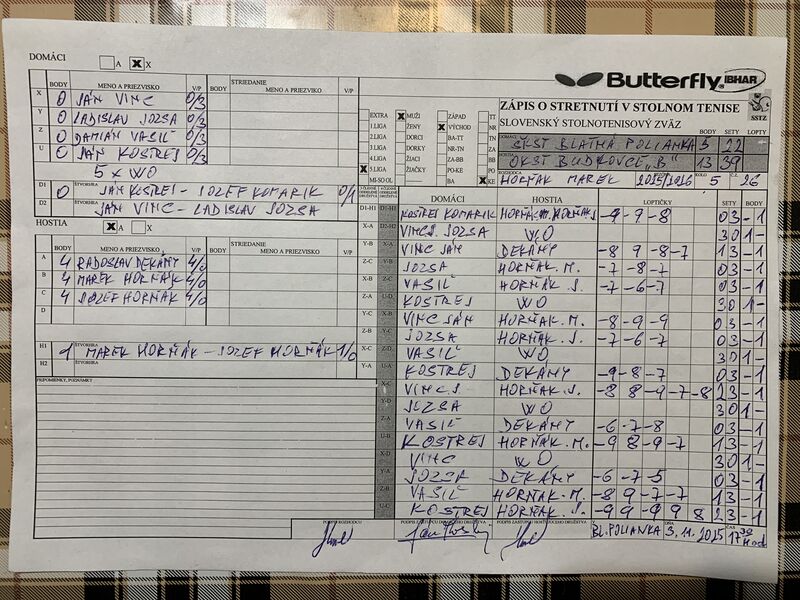 DOMÁCI A X
BODY MENO A PRIEZVISKO V/P BODY STRIEDANIE MENO A PRIEZVISKO V/P
X 0 JÁN VINC 0/3
Y 0 LADISLAV JOZSA 0/3
Z 0 DAMIÁN VASIĽ 0/3
U 0 JÁN KOSTREJ 0/3
5 x WO
D1 0 JÁN KOSTREJ - JOZEF KOMARIK 0/1
D2 JÁN VINC - LADISLAV JOZSA
HOSTIA A X
BODY MENO A PRIEZVISKO V/P BODY STRIEDANIE MENO A PRIEZVISKO V/P
A 4 RADOSLAV DEKÁNY 4/0
B 4 MAREK HORŇÁK 4/0
C 4 JOZEF HORŇÁK 4/0
D
H1 ŠTVORHRA 1 MAREK HORŇÁK - JOZEF HORŇÁK 1/0
H2 ŠTVORHRA
PRIPOMIENKY, POZNÁMKY
Butterfly IBHAR
ZÁPIS O STRETNUTÍ V STOLNOM TENISE
SLOVENSKÝ STOLNOTENISOVÝ ZVÄZ
SSTZ
EXTRA X MUŽI ZÁPAD TT
1.LIGA ŽENY X VÝCHOD NR
2.LIGA DORCI BA-TT TN
3.LIGA DORKY NR-TN ZA
4.LIGA ŽIACI ZA-BB BB
X 5.LIGA ŽIAČKY PO
MI-SO-OL BA X KE
DOMÁCI ŠKST BLATNÁ POLIANKA BODY 5 SETY 22 LOPTY
HOSTIA OKST BUDKOVCE "B" 13 39
ROZHODCA HORŇÁK MAREK 2015/2016 KOLO 5 Č.Z. 26
DOMÁCI HOSTIA LOPTIČKY SETY BODY
D1-H1 KOSTREJ KOMARIK HORŇÁK M. HORŇÁK J. -9 -9 -8 0 3 -1
X-A D2-H2 VINC J. JOZSA WO 3 0 1 -
VINC JÁN DEKÁNY -8 9 -8 -7 1 3 -1
JOZSA HORŇÁK. M. -7 -8 -7 0 3 -1
VASIĽ HORŇÁK J. -7 -6 -7 0 3 -1
KOSTREJ WO 3 0 1 -
VINC JÁN HORŇÁK. M. -8 -9 -9 0 3 -1
JOZSA HORŇÁK. J. -7 -6 -7 0 3 -1
VASIĽ WO 3 0 1 -
KOSTREJ DEKÁNY -9 -8 -7 0 3 -1
VINC J. HORŇÁK. J. -8 8 -9 -7 -8 2 3 -1
JOZSA WO 3 0 1 -
VASIĽ DEKÁNY -6 -7 -8 0 3 -1
KOSTREJ HORŇÁK. M. -9 8 -9 -7 1 3 -1
VINC WO 3 0 1 -
JOZSA DEKÁNY -6 -7 -5 0 3 -1
VASIĽ HORŇÁK M. -8 9 -7 -7 1 3 -1
KOSTREJ HORŇÁK. J. -9 9 9 9 8 2 3 -1
PODPIS ROZHODCU
BL. POLIANKA 3.11.2015 17 30 Hod